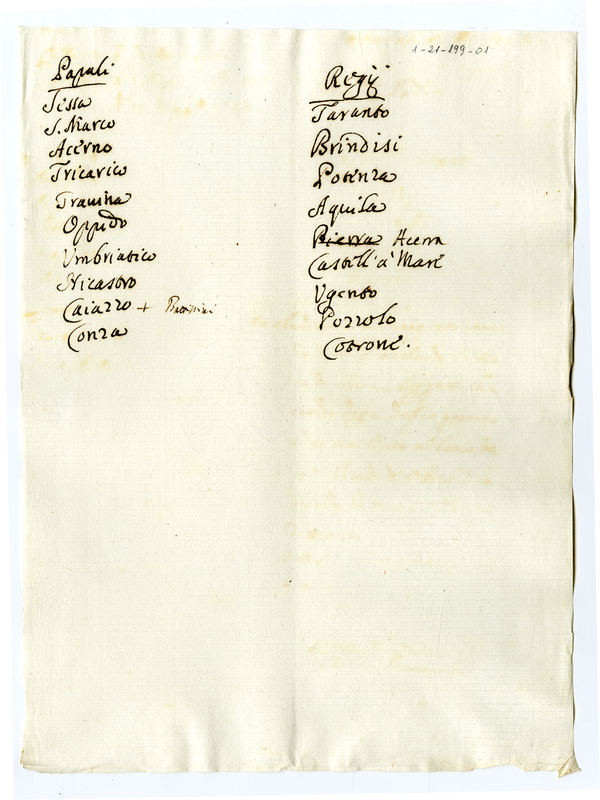 1-21-199-01
Papali
Sissa
S. Marco
Acerno
Tricarico
Travina
Oppido
Umbriatico
Nicastro
Caiazzo +
Conza
Regÿ
Taranto
Brindisi
Potenza
Aquila
Acerra
Castell' a' Mare
Ugento
Pozzolo
Cotrone.